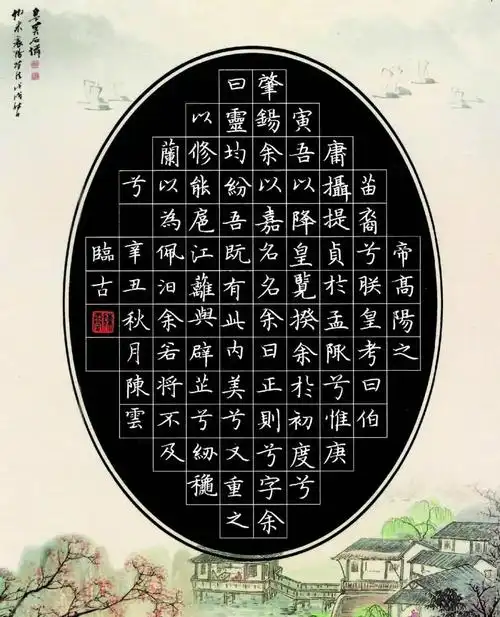 帝高陽之
苗裔兮朕皇考曰伯
庸攝提貞於孟陬兮惟庚
寅吾以降皇覽揆余於初度兮
肇錫余以嘉名名余曰正則兮字余
曰靈均紛吾既有此内美兮又重之
以修能扈江蘺與辟芷兮紉穐
蘭以為佩汩余若將不及
兮 辛丑秋月陳雲
臨古